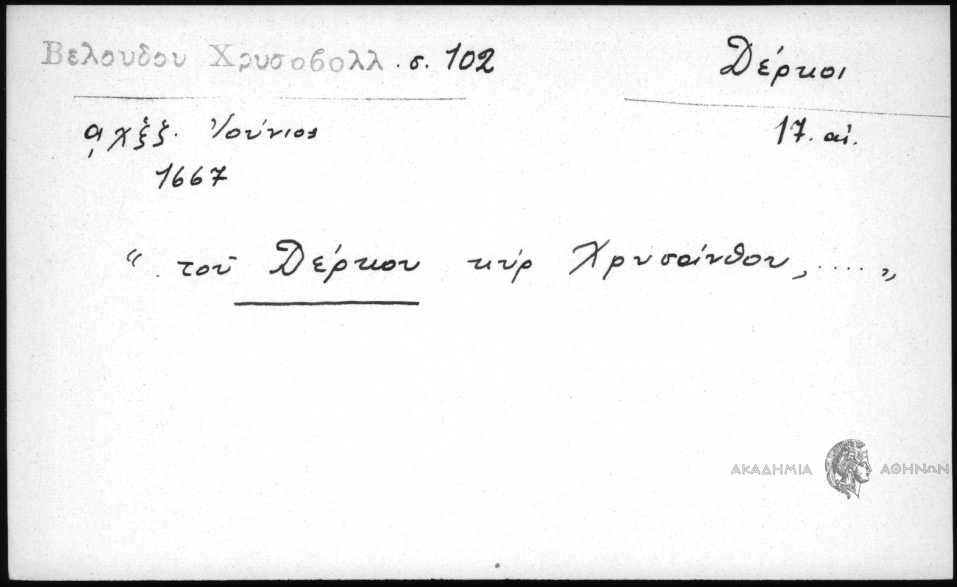 Βελουδου Χρυσοβολλ. σ. 102
Δέρκοι
͵αχξξ. Ἰούνιος
17. αἰ.
1667
"... τοῦ Δέρκου κὺρ Χρυσάνθου, .... "
ΑΚΑΔΗΜΙΑ ΑΘΗΝΩΝ